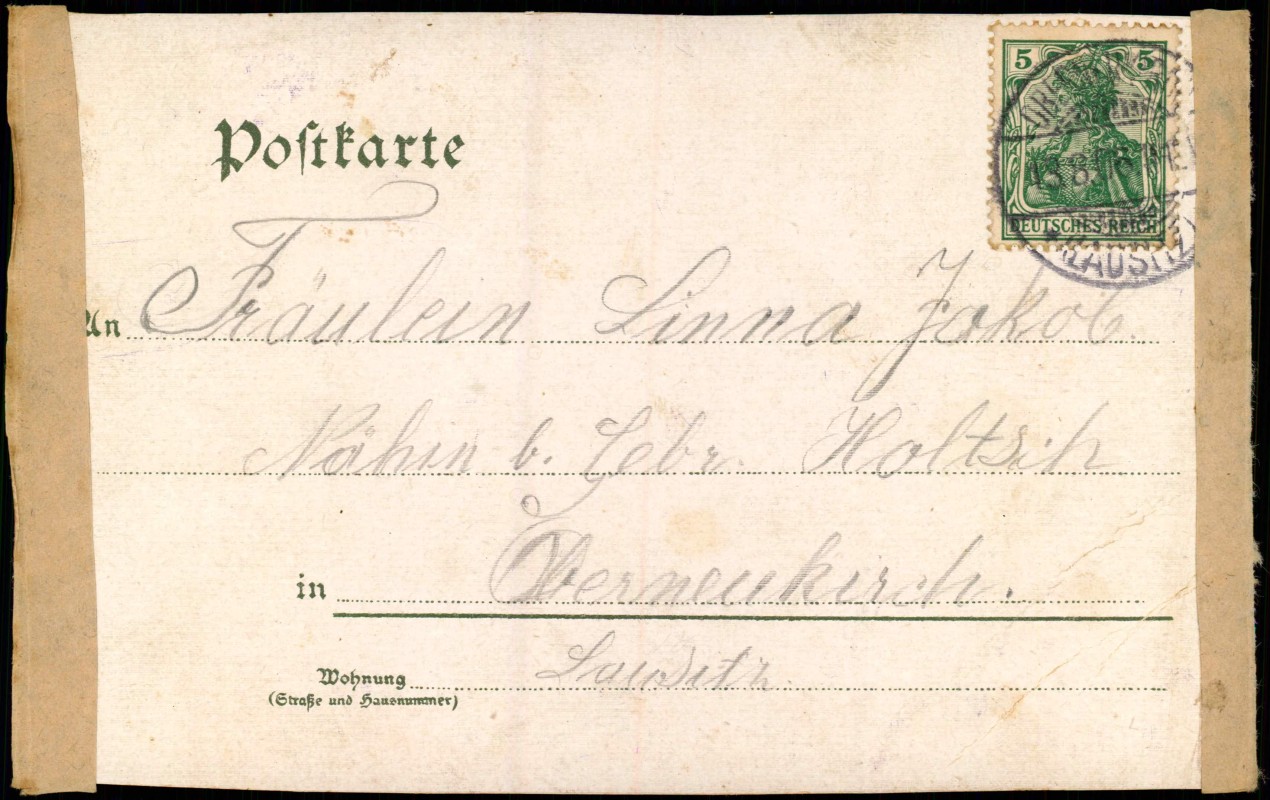 5 5
DEUTSCHES REICH
LAUSITZ)
Postkarte
An Fräulein Linna Jakob.
Nähin b. Gebr. Holtsch
in Oberneukirch.
Lausitz.
Wohnung
(Straße und Hausnummer)